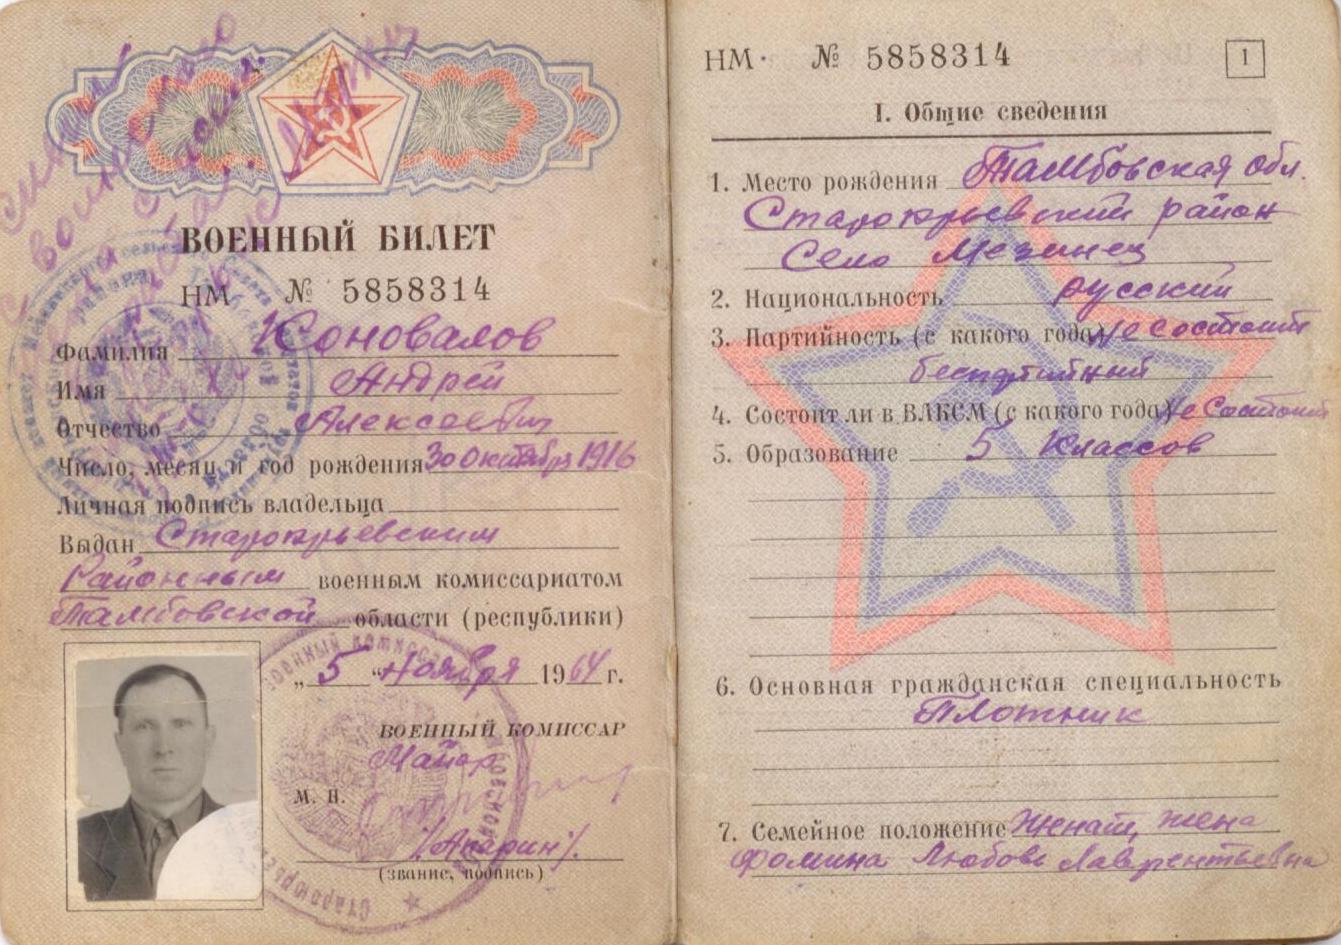 ВОЕННЫЙ БИЛЕТ
НМ № 5858314
Фамилия Коновалов
Имя Андрей
Отчество Алексеевич
Число, месяц и год рождения 30 октября 1916
Личная подпись владельца
Выдан Староюрьевским
Районным военным комиссариатом
Тамбовской области (республики)
„5“ ноября 1964 г.
ВОЕННЫЙ КОМИССАР
Майор
М. П.
(звание, подпись)
НМ № 5858314
1
I. Общие сведения
1. Место рождения Тамбовская обл.
Староюрьевский район
Село Мезинец
2. Национальность русский
3. Партийность (с какого года) не состоит
беспартийный
4. Состоит ли в ВЛКСМ (с какого года) не состоит
5. Образование 5 классов
6. Основная гражданская специальность
Плотник
7. Семейное положение Женат, жена
Фомина Любовь Лаврентьевна